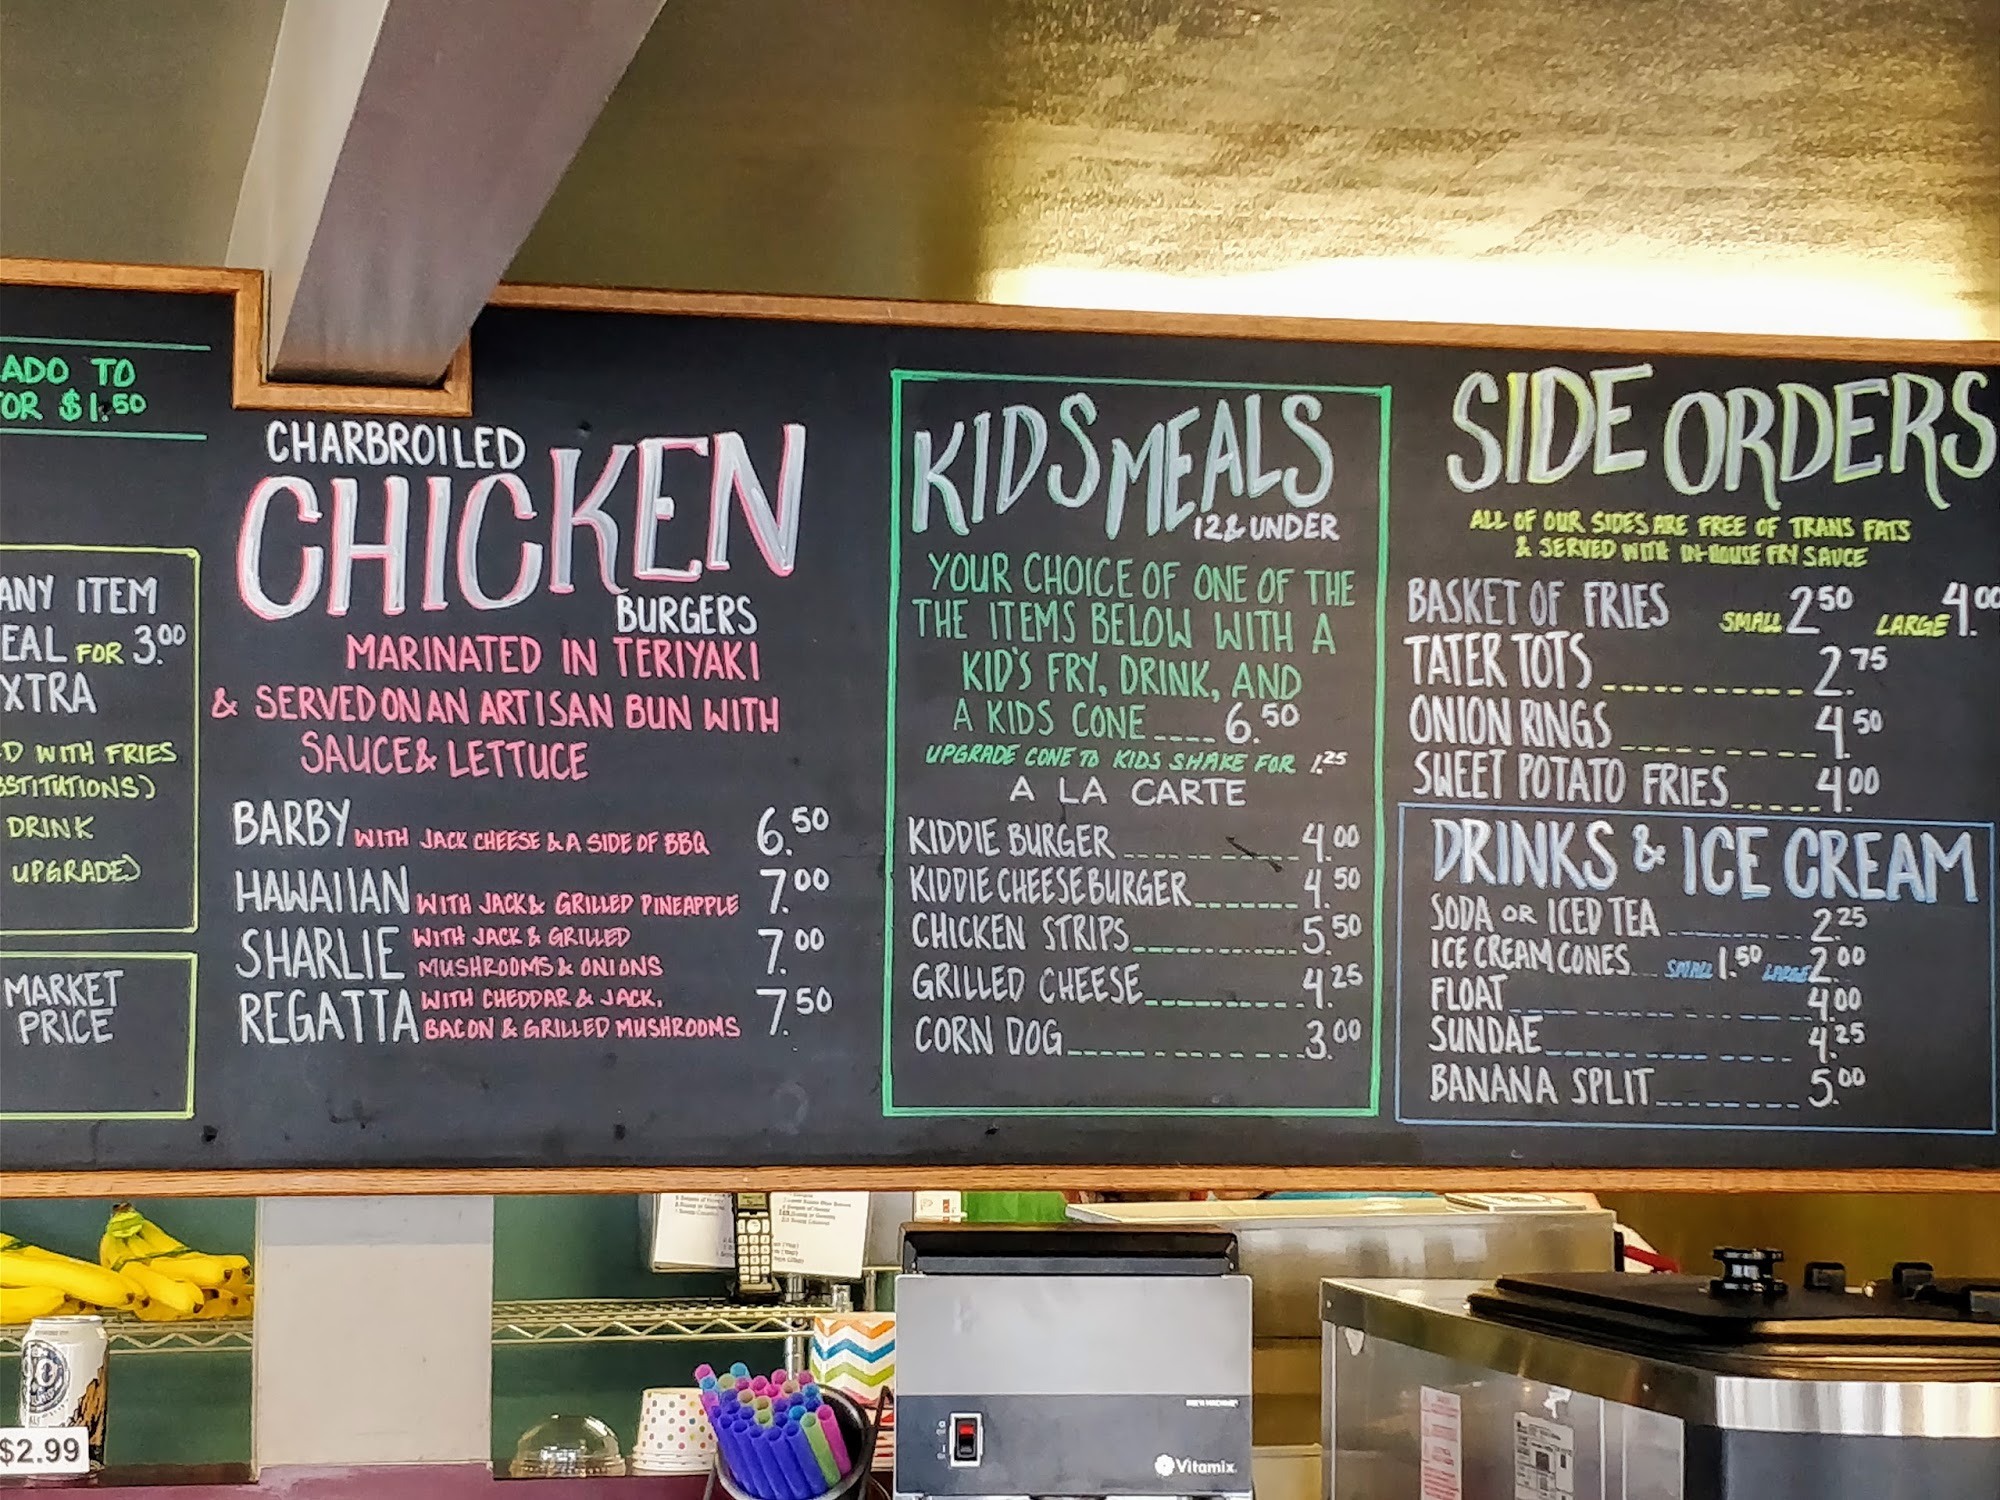 ADO TO
OR $1.50
ANY ITEM
EAL FOR 3.00
XTRA
D WITH FRIES
BSTITUTIONS)
DRINK
UPGRADE)
MARKET
PRICE
CHARBROILED
CHICKEN
BURGERS
MARINATED IN TERIYAKI
& SERVED ON AN ARTISAN BUN WITH
SAUCE & LETTUCE
BARBY WITH JACK CHEESE & A SIDE OF BBQ 6.50
HAWAIIAN WITH JACK & GRILLED PINEAPPLE 7.00
SHARLIE WITH JACK & GRILLED
MUSHROOMS & ONIONS 7.00
REGATTA WITH CHEDDAR & JACK,
BACON & GRILLED MUSHROOMS 7.50
KIDS MEALS
12 & UNDER
YOUR CHOICE OF ONE OF THE
THE ITEMS BELOW WITH A
KID'S FRY, DRINK, AND
A KIDS CONE 6.50
UPGRADE CONE TO KIDS SHAKE FOR 1.25
A LA CARTE
KIDDIE BURGER 4.00
KIDDIE CHEESEBURGER 4.50
CHICKEN STRIPS 5.50
GRILLED CHEESE 4.25
CORN DOG 3.00
SIDE ORDERS
ALL OF OUR SIDES ARE FREE OF TRANS FATS
& SERVED WITH IN-HOUSE FRY SAUCE
BASKET OF FRIES SMALL 2.50 LARGE 4.00
TATER TOTS 2.75
ONION RINGS 4.50
SWEET POTATO FRIES 4.00
DRINKS & ICE CREAM
SODA OR ICED TEA 2.25
ICE CREAM CONES SMALL 1.50 LARGE 2.00
FLOAT 4.00
SUNDAE 4.25
BANANA SPLIT 5.00
$2.99
Vitamix